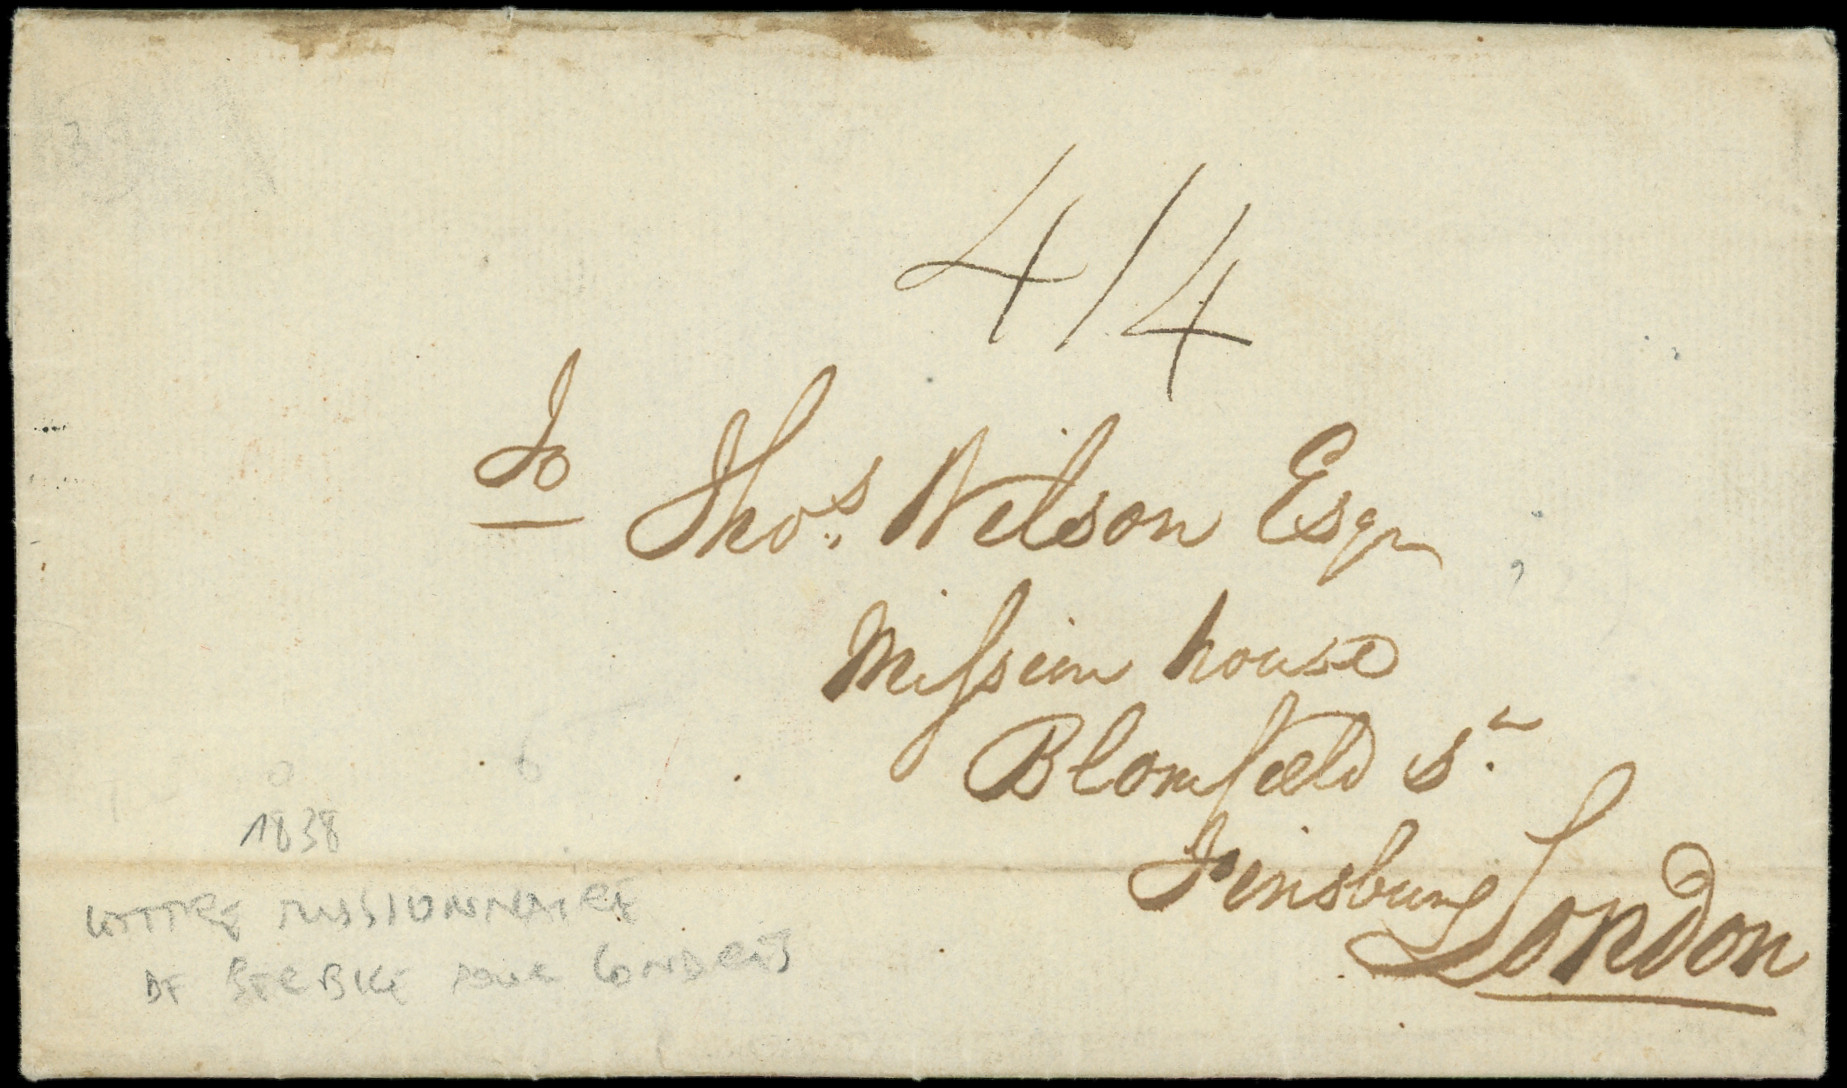 4/4
To
Thos. Wilson Esqr
Mission house
Blomfield St.
Finsbury London
1838
LETTRE MISSIONNAIRE
DE BERBICE POUR LONDRES